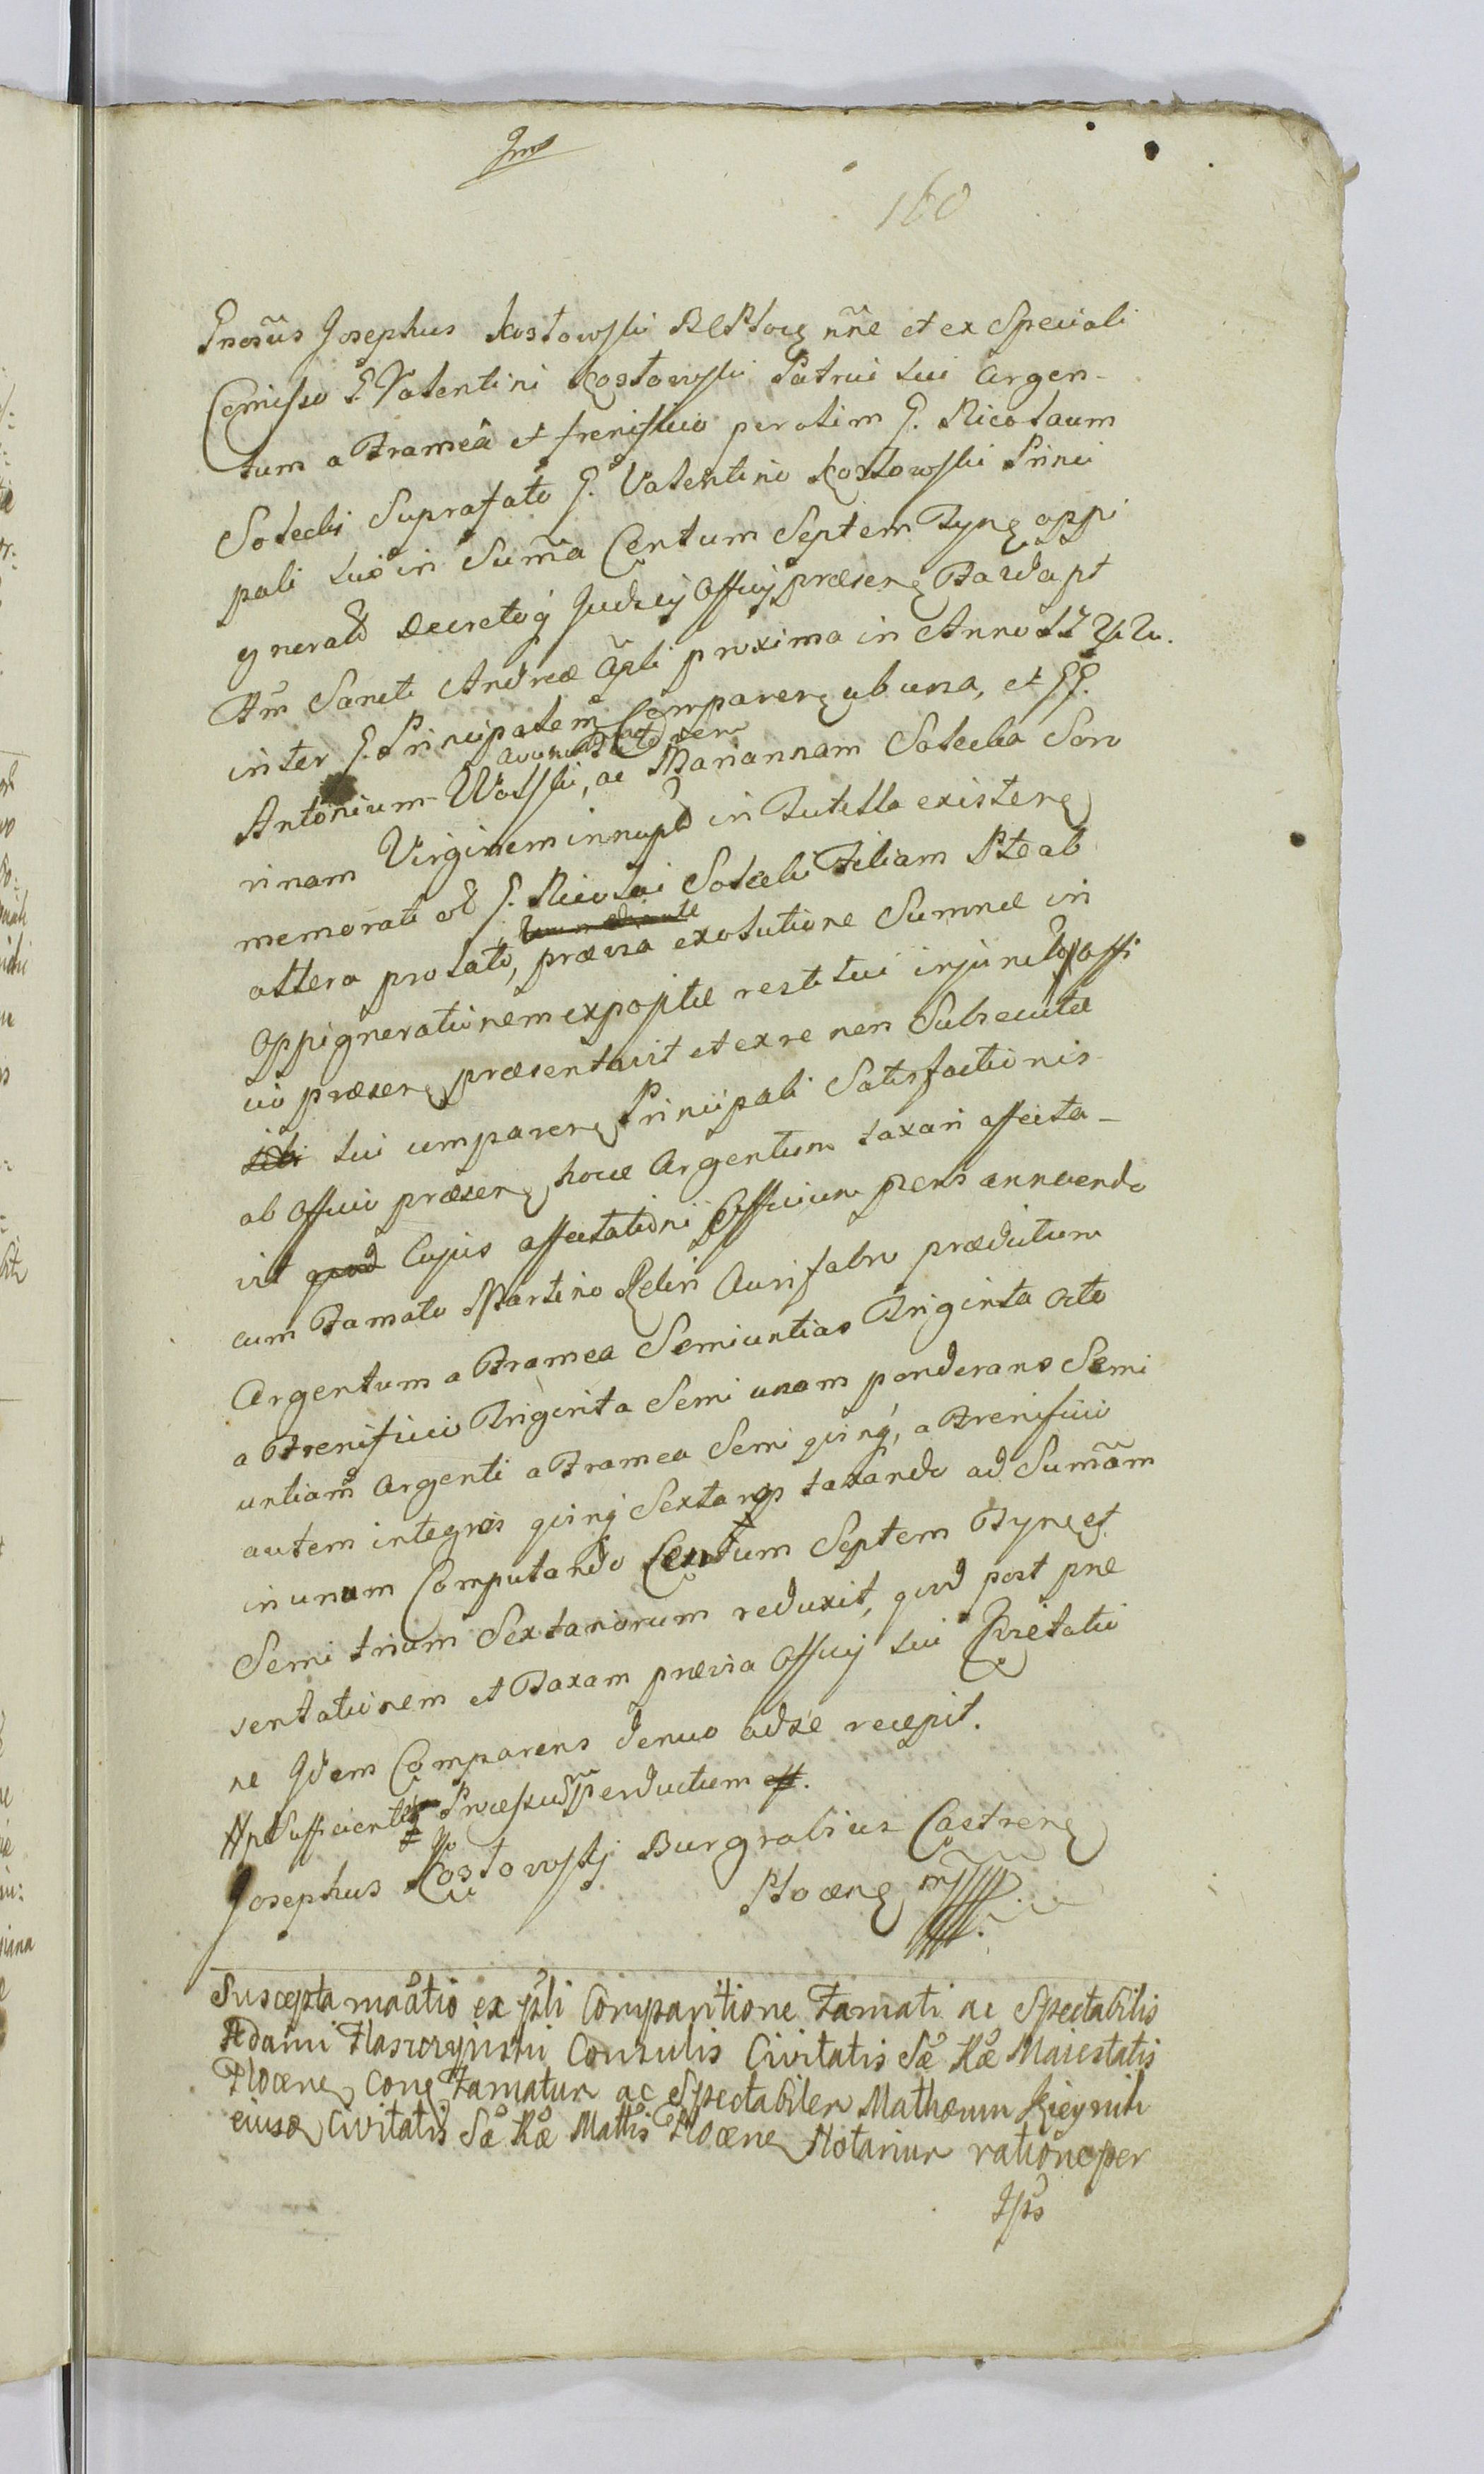 160
Gnosus Josephus Kostowski B C Ploc nne et ex Speciali
Comisso G. Valentini Kostowski Patrui sui Argen-
tum a Framea et frenisicio per olim G. Nicolaum
Sotecki Suprafato G. Valentino Kostowski Princi
pali suo in Suma Centum Septem Tynf oppi
gnerato Decretoq Judicij Officij præsen
Fm Sancti Andreæ Apli proxima in Anno
inter G. Principalem Comparen ab una, et GG.
Antonium Wolski, ac Mariannam Sotecka Soro
rinam Virginem innupt in Tutella existen
memorati ol G. Nicolai Sotecki Filiam Pte ab
altera prolato, prævia exolutione Summæ in
Oppignerationem expositæ restitui injunct offi
cio præsen præsentavit et ex re non Subsecutæ
sibi sui comparen Principali Satisfactionis
ab Officio præsen hocce Argentum taxari affecta-
vit quod Cujus affectationi Officium præns annuendo
cum Famato Martino Aurifabro prædictum
Argentum a Framea Semiuntias Triginta Octo
a Frenisicio Triginta Semi unam ponderans Semi
untiam Argenti a Framea Semi quinq, a Frenisicio
autem integros quinq Sextarios taxando ad Sumam
in unum Computando Centum Septem Tynf et
Semi trium Sextariorum reduxit, quod post præ
sentationem et Taxam prævia Officij sui Quietatio
ne Idem Comparens denuo ad se recepit.
Sufficienter Processu perductum
Josephus Kostowskj Burgrabius Castren
Plocen mp
Suscepta maatio ex pli Comparitione Famati ac Spectabilis
Adami Consulis Civitatis Sæ Ræ Maiestatis
Plocen con Famatum ac Spectabilem Mathæum
eiusd Civitatis Sæ Ræ Mattis Plocen Notarium ratione per
Ips